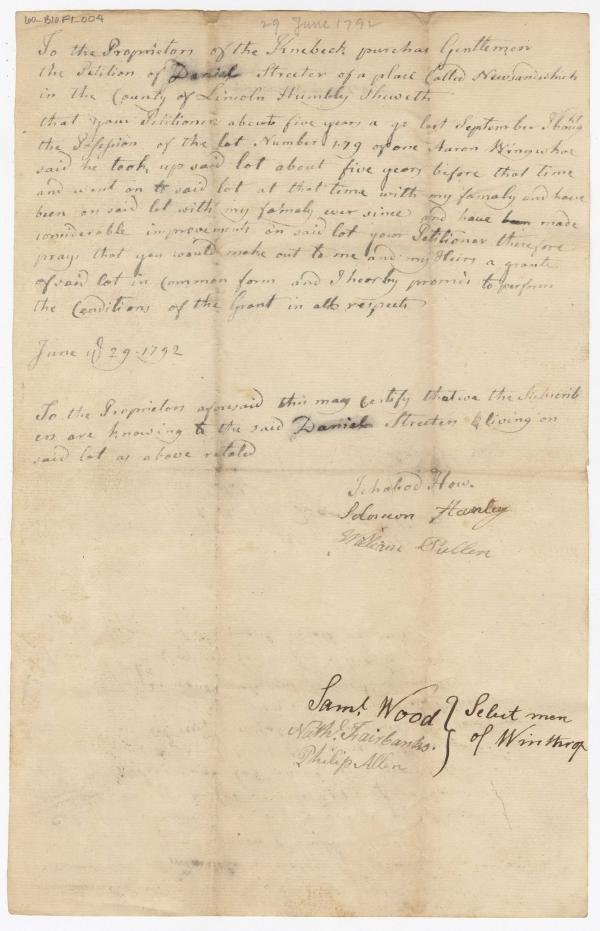 60-B10F1-004
29 June 1792
To the Proprietors of the Knebeck purchas Gentlemen
the Petition of Daniel Streeter of a place Called Newsandwhich
in the County of Lincoln Humbly Sheweth
that your Petitioner about five years a go last September
the Possession of the lot Number 179 of one Aaron Wing who
said he took up said lot about five years before that time
and went on to said lot at that time with my famaly and have
been on said lot with my famaly ever since and have been made
considerable improvements on said lot your Petitioner therefore
prays that you would make out to me and my Heirs a grante
of said lot in common form and I hearby promis to perform
the Conditions of the Grant in all respects
June ye 29-1792
To the Proprietors aforesaid this may Certify that we the Subscrib
ers are knowing to the said Daniel Streeter living on
said lot as above retold
Ichabod How.
Solomon Stanley
William Pullen
Saml. Wood } Select men
Nathl. Fairbanks. of Winthrop
Philip Allen